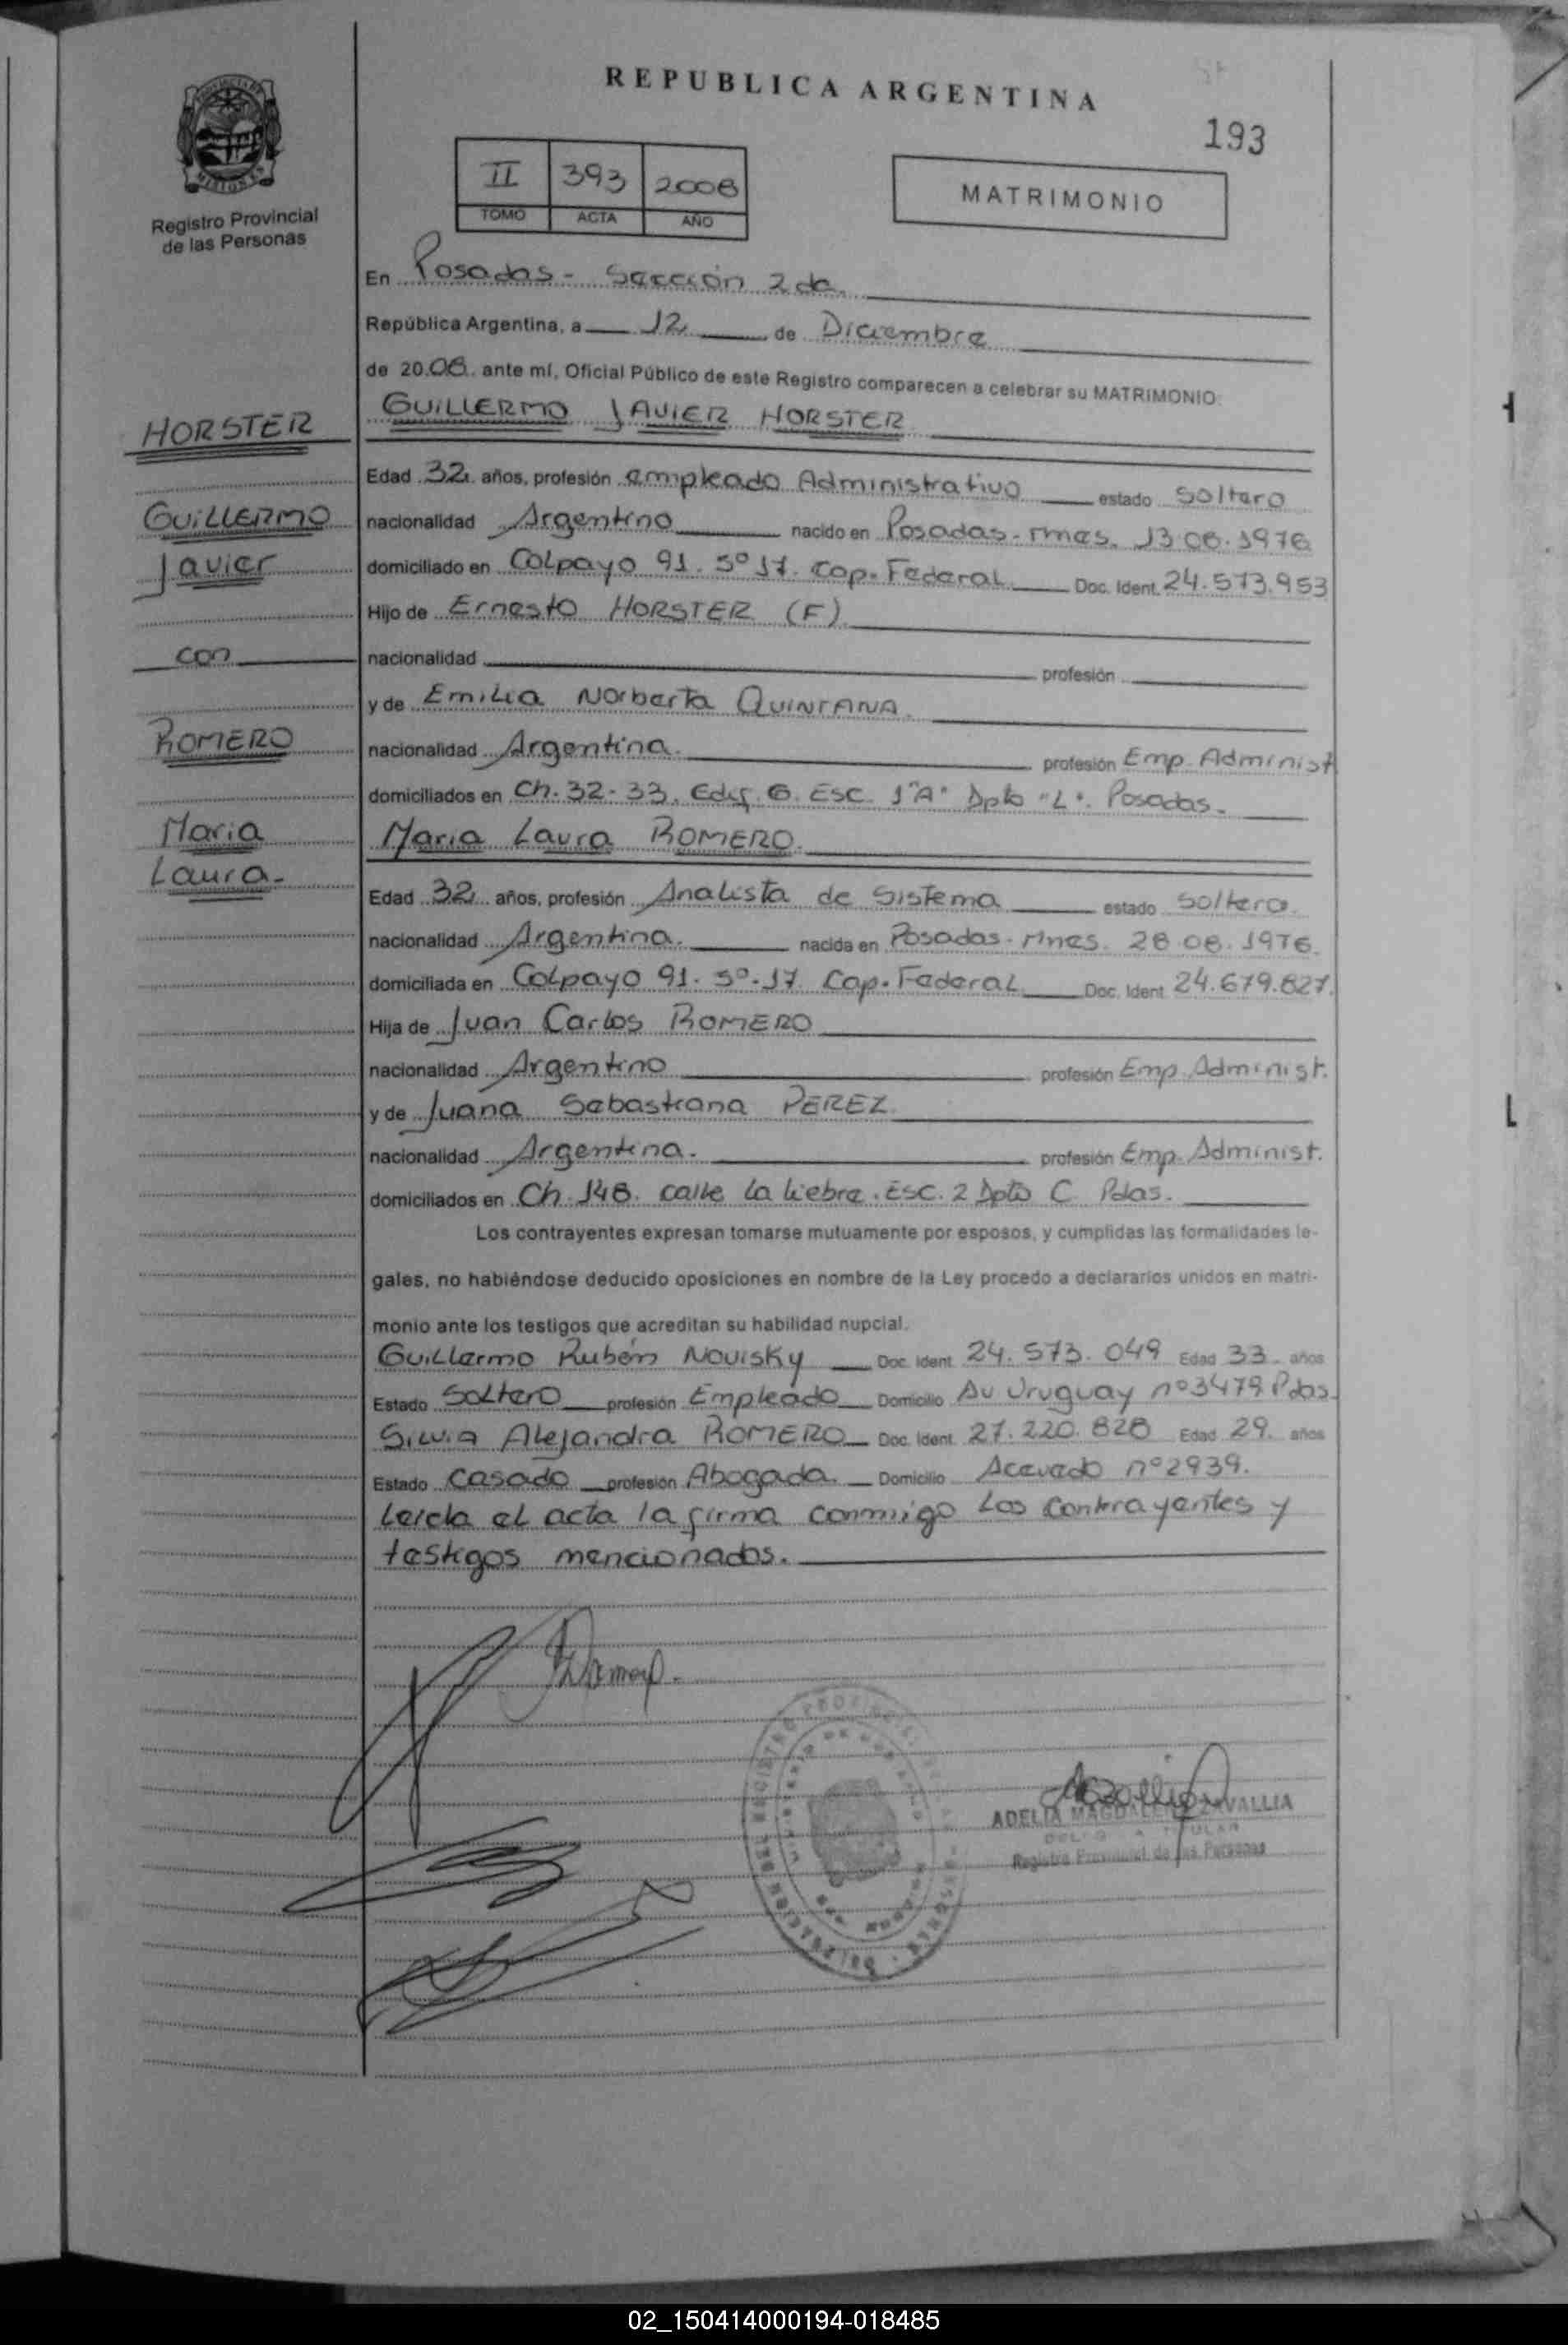 REPUBLICA ARGENTINA
193
II 393 2008
TOMO ACTA AÑO
MATRIMONIO
Registro Provincial
de las Personas
En Posadas - Sección 2da.
República Argentina, a 12 de Diciembre
de 2008 ante mí, Oficial Público de este Registro comparecen a celebrar su MATRIMONIO:
GUILLERMO JAVIER HORSTER
HORSTER
Edad 32 años, profesión empleado Administrativo estado Soltero
GUILLERMO
nacionalidad Argentino nacido en Posadas - Mnes. 13.08.1976
Javier
domiciliado en Colpayo 91. 5º 17. Cap. Federal Doc. Ident. 24.573.953
Hijo de Ernesto HORSTER (F)
con
nacionalidad profesión
y de Emilia Norberta QUINTANA.
ROMERO
nacionalidad Argentina. profesión Emp. Administ
domiciliados en Ch. 32-33. Edif. 6. Esc. 1"A" Dpto "L". Posadas.
Maria
Maria Laura ROMERO.
Laura-
Edad 32 años, profesión Analista de Sistema estado Soltera.
nacionalidad Argentina. nacida en Posadas - Mnes. 28.08.1976.
domiciliada en Colpayo 91. 5º-17. Cap. Federal Doc. Ident. 24.679.827.
Hija de Juan Carlos ROMERO
nacionalidad Argentino profesión Emp. Administ.
y de Juana Sebastiana PEREZ
nacionalidad Argentina. profesión Emp. Administ.
domiciliados en Ch. 148. calle la liebre. Esc. 2 Dpto C Pdas.
Los contrayentes expresan tomarse mutuamente por esposos, y cumplidas las formalidades le-
gales, no habiéndose deducido oposiciones en nombre de la Ley procedo a declararlos unidos en matri-
monio ante los testigos que acreditan su habilidad nupcial.
Guillermo Rubén NOVISKY Doc. Ident. 24.573.049 Edad 33. años
Estado Soltero profesión Empleado Domicilio Av Uruguay nº3479 Pdas.
Silvia Alejandra ROMERO Doc. Ident. 27.220.828 Edad 29. años
Estado Casado profesión Abogada. Domicilio Acevedo nº2939.
Leida el acta la firma conmigo los contrayentes y
testigos mencionados.
ADELIA MAGDALENA ZAVALLIA
Registro Provincial de las Personas
02_150414000194-018485